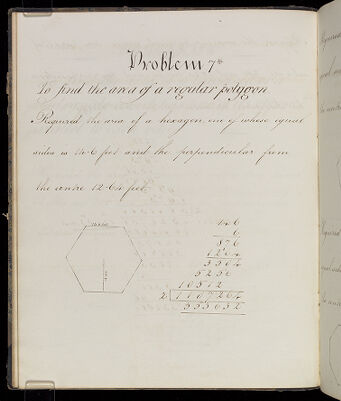 Problem 7th
To find the area of a regular polygon
Required the area of a hexagon one of whose equal
sides is 14.6 feet and the perpendicular from
the centre 12.64 feet
14.6
6
87 6
12.64
3504
5256
10512
2 1107264
553632